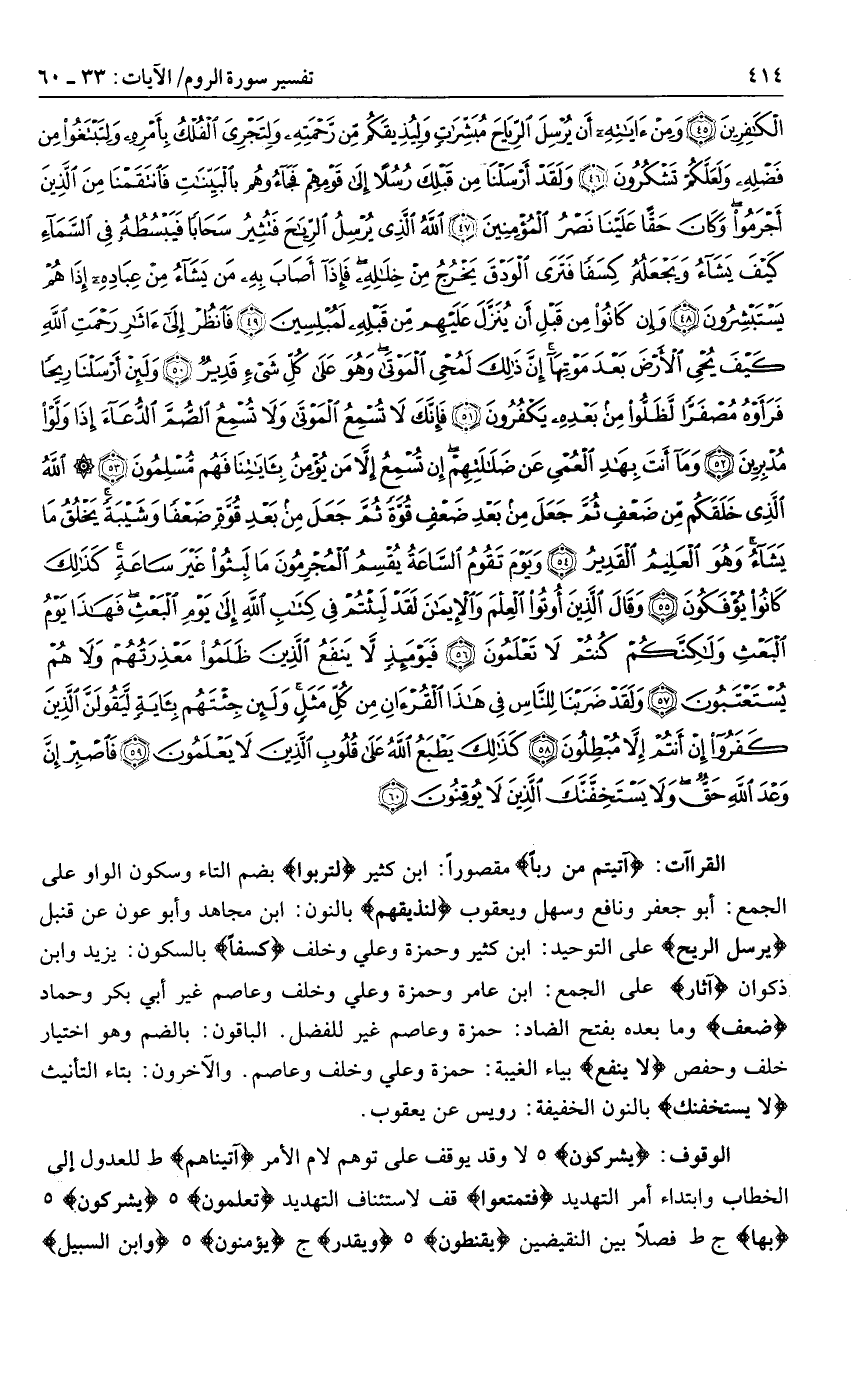 ٤١٤ تفسير سورة الروم/ الآيات: ٣٣ ـ ٦٠
الْكَٰفِرِينَ ﴿٤٥﴾ وَمِنْ ءَايَٰتِهِۦٓ أَن يُرْسِلَ الرِّيَاحَ مُبَشِّرَٰتٍ وَلِيُذِيقَكُم مِّن رَّحْمَتِهِۦ وَلِتَجْرِىَ الْفُلْكُ بِأَمْرِهِۦ وَلِتَبْتَغُوا۟ مِن
فَضْلِهِۦ وَلَعَلَّكُمْ تَشْكُرُونَ ﴿٤٦﴾ وَلَقَدْ أَرْسَلْنَا مِن قَبْلِكَ رُسُلًا إِلَىٰ قَوْمِهِمْ فَجَآءُوهُم بِالْبَيِّنَٰتِ فَانتَقَمْنَا مِنَ الَّذِينَ
أَجْرَمُوا۟ ۖ وَكَانَ حَقًّا عَلَيْنَا نَصْرُ الْمُؤْمِنِينَ ﴿٤٧﴾ اللَّهُ الَّذِى يُرْسِلُ الرِّيَٰحَ فَتُثِيرُ سَحَابًا فَيَبْسُطُهُۥ فِى السَّمَآءِ
كَيْفَ يَشَآءُ وَيَجْعَلُهُۥ كِسَفًا فَتَرَى الْوَدْقَ يَخْرُجُ مِنْ خِلَٰلِهِۦ ۖ فَإِذَآ أَصَابَ بِهِۦ مَن يَشَآءُ مِنْ عِبَادِهِۦٓ إِذَا هُمْ
يَسْتَبْشِرُونَ ﴿٤٨﴾ وَإِن كَانُوا۟ مِن قَبْلِ أَن يُنَزَّلَ عَلَيْهِم مِّن قَبْلِهِۦ لَمُبْلِسِينَ ﴿٤٩﴾ فَانظُرْ إِلَىٰٓ ءَاثَٰرِ رَحْمَتِ اللَّهِ
كَيْفَ يُحْىِ الْأَرْضَ بَعْدَ مَوْتِهَآ ۚ إِنَّ ذَٰلِكَ لَمُحْىِ الْمَوْتَىٰ ۖ وَهُوَ عَلَىٰ كُلِّ شَىْءٍ قَدِيرٌ ﴿٥٠﴾ وَلَئِنْ أَرْسَلْنَا رِيحًا
فَرَأَوْهُ مُصْفَرًّا لَّظَلُّوا۟ مِنۢ بَعْدِهِۦ يَكْفُرُونَ ﴿٥١﴾ فَإِنَّكَ لَا تُسْمِعُ الْمَوْتَىٰ وَلَا تُسْمِعُ الصُّمَّ الدُّعَآءَ إِذَا وَلَّوْا۟
مُدْبِرِينَ ﴿٥٢﴾ وَمَآ أَنتَ بِهَٰدِ الْعُمْىِ عَن ضَلَٰلَتِهِمْ ۖ إِن تُسْمِعُ إِلَّا مَن يُؤْمِنُ بِـَٔايَٰتِنَا فَهُم مُّسْلِمُونَ ﴿٥٣﴾ ۞ اللَّهُ
الَّذِى خَلَقَكُم مِّن ضَعْفٍ ثُمَّ جَعَلَ مِنۢ بَعْدِ ضَعْفٍ قُوَّةً ثُمَّ جَعَلَ مِنۢ بَعْدِ قُوَّةٍ ضَعْفًا وَشَيْبَةً ۚ يَخْلُقُ مَا
يَشَآءُ ۖ وَهُوَ الْعَلِيمُ الْقَدِيرُ ﴿٥٤﴾ وَيَوْمَ تَقُومُ السَّاعَةُ يُقْسِمُ الْمُجْرِمُونَ مَا لَبِثُوا۟ غَيْرَ سَاعَةٍ ۚ كَذَٰلِكَ
كَانُوا۟ يُؤْفَكُونَ ﴿٥٥﴾ وَقَالَ الَّذِينَ أُوتُوا۟ الْعِلْمَ وَالْإِيمَٰنَ لَقَدْ لَبِثْتُمْ فِى كِتَٰبِ اللَّهِ إِلَىٰ يَوْمِ الْبَعْثِ ۖ فَهَٰذَا يَوْمُ
الْبَعْثِ وَلَٰكِنَّكُمْ كُنتُمْ لَا تَعْلَمُونَ ﴿٥٦﴾ فَيَوْمَئِذٍ لَّا يَنفَعُ الَّذِينَ ظَلَمُوا۟ مَعْذِرَتُهُمْ وَلَا هُمْ
يُسْتَعْتَبُونَ ﴿٥٧﴾ وَلَقَدْ ضَرَبْنَا لِلنَّاسِ فِى هَٰذَا الْقُرْءَانِ مِن كُلِّ مَثَلٍ ۚ وَلَئِن جِئْتَهُم بِـَٔايَةٍ لَّيَقُولَنَّ الَّذِينَ
كَفَرُوٓا۟ إِنْ أَنتُمْ إِلَّا مُبْطِلُونَ ﴿٥٨﴾ كَذَٰلِكَ يَطْبَعُ اللَّهُ عَلَىٰ قُلُوبِ الَّذِينَ لَا يَعْلَمُونَ ﴿٥٩﴾ فَاصْبِرْ إِنَّ
وَعْدَ اللَّهِ حَقٌّ ۖ وَلَا يَسْتَخِفَّنَّكَ الَّذِينَ لَا يُوقِنُونَ ﴿٦٠﴾
القراآت: ﴿آتيتم من رباً﴾ مقصوراً: ابن كثير ﴿لتربوا﴾ بضم التاء وسكون الواو على
الجمع: أبو جعفر ونافع وسهل ويعقوب ﴿لنذيقهم﴾ بالنون: ابن مجاهد وأبو عون عن قنبل
﴿يرسل الريح﴾ على التوحيد: ابن كثير وحمزة وعلي وخلف ﴿كسفاً﴾ بالسكون: يزيد وابن
ذكوان ﴿آثار﴾ على الجمع: ابن عامر وحمزة وعلي وخلف وعاصم غير أبي بكر وحماد
﴿ضعف﴾ وما بعده بفتح الضاد: حمزة وعاصم غير للفضل. الباقون: بالضم وهو اختيار
خلف وحفص ﴿لا ينفع﴾ بياء الغيبة: حمزة وعلي وخلف وعاصم. والآخرون: بتاء التأنيث
﴿لا يستخفنك﴾ بالنون الخفيفة: رويس عن يعقوب.
الوقوف: ﴿يشركون﴾ ٥ لا وقد يوقف على توهم لام الأمر ﴿آتيناهم﴾ ط للعدول إلى
الخطاب وابتداء أمر التهديد ﴿فتمتعوا﴾ قف لاستئناف التهديد ﴿تعلمون﴾ ٥ ﴿يشركون﴾ ٥
﴿بها﴾ ج ط فصلاً بين النقيضين ﴿يقنطون﴾ ٥ ﴿ويقدر﴾ ج ﴿يؤمنون﴾ ٥ ﴿وابن السبيل﴾